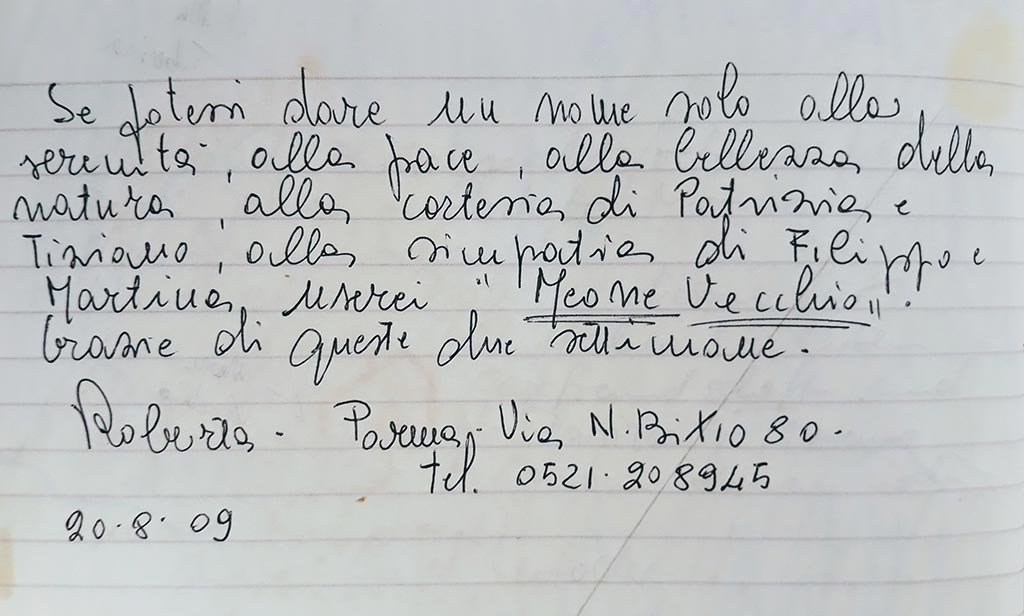 Se potessi dare un nome solo alla
serenità, alla pace, alla bellezza della
natura, alla cortesia di Patrizia e
Tiziano, alla simpatia di Filippo e
Martina, userei " "Meone Vecchio".
Grazie di queste due settimane.
Roberta - Parma, Via N. Bixio 80.
tel. 0521.208945
20.8.09